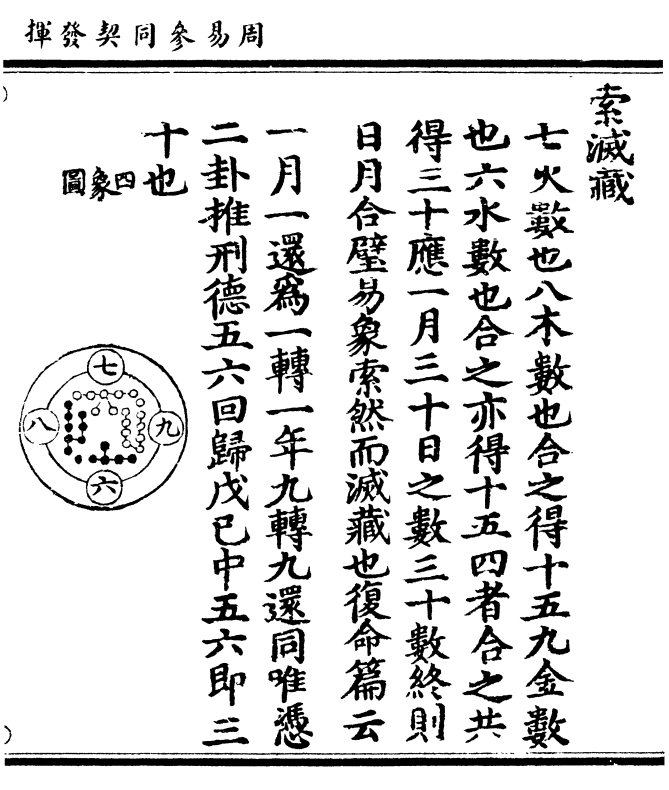 周易參同契發揮
索滅藏
七火數也八木數也合之得十五九金數
也六水數也合之亦得十五四者合之共
得三十應一月三十日之數三十數終則
日月合璧易象索然而滅藏也復命篇云
一月一還爲一轉一年九轉九還同唯憑
二卦推刑德五六回歸戊已中五六即三
十也
四象圖
七
九
八
六